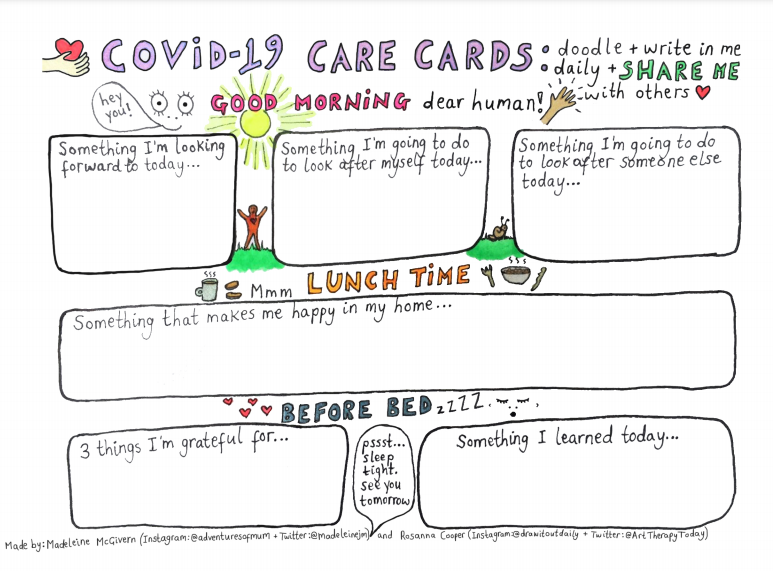 COViD-19 CARE CARDS:
doodle + write in me
daily + SHARE ME
with others
hey
you!
GOOD MORNING dear human!
Something I'm looking
forward to today...
Something I'm going to do
to look after myself today...
Something I'm going to do
to look after someone else
today...
sss
Mmm LUNCH TiME
sss
Something that makes me happy in my home...
BEFORE BED zzZZZ.
3 things I'm grateful for...
pssst...
sleep
tight.
see you
tomorrow
Something I learned today...
Made by: Madeleine McGivern (Instagram:@adventuresofmum + Twitter:@madeleinejm) and Rosanna Cooper (Instagram:@drawitoutdaily + Twitter:@ArtTherapyToday)